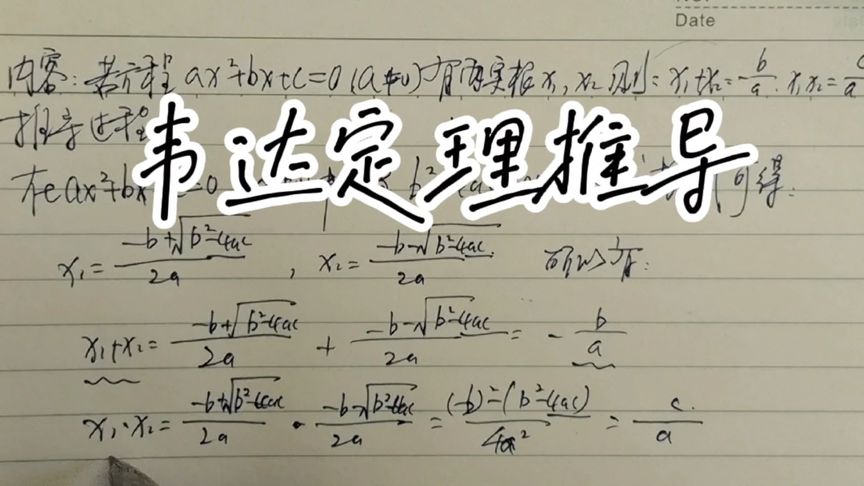 Date
内容:若方程 ax²+bx+c=0 (a≠0) 有两实根 x₁, x₂ 则: x₁+x₂=-b/a. x₁x₂=c/a
推导过程
韦达定理推导
在 ax²+bx =0 b² 可得:
x₁=(-b+√(b²-4ac))/2a , x₂=(-b-√(b²-4ac))/2a 所以有:
x₁+x₂=(-b+√(b²-4ac))/2a + (-b-√(b²-4ac))/2a = -b/a
x₁·x₂=(-b+√(b²-4ac))/2a · (-b-√(b²-4ac))/2a = ((-b)²-(b²-4ac))/4a² = c/a